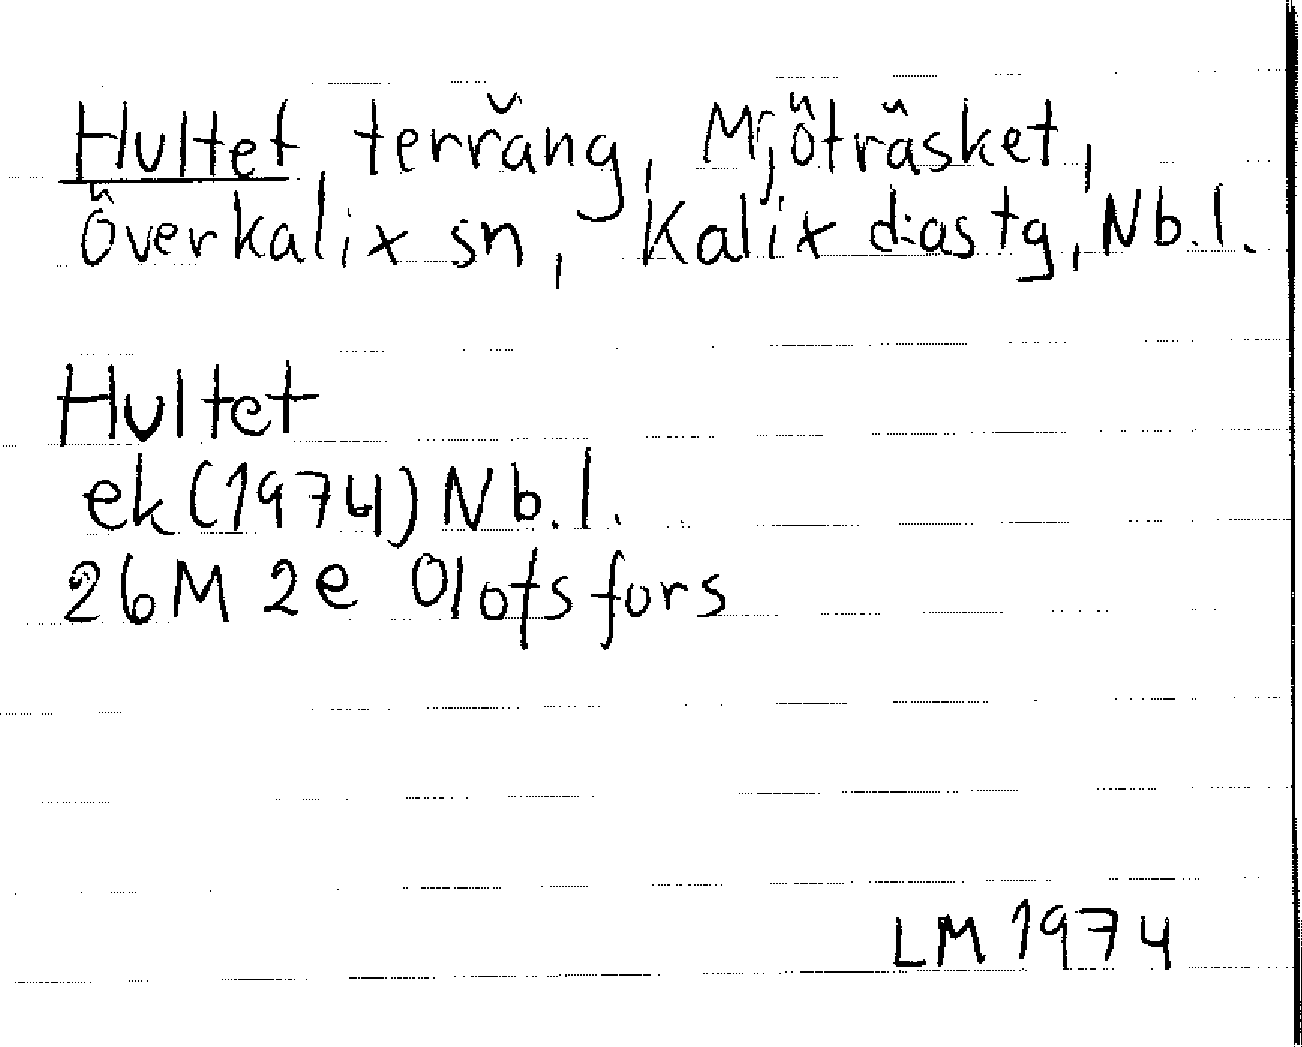 Hultet terräng, Mjöträsket,
Överkalix sn, Kalix dastg, Nb.l.
Hultet
ek (1974) Nb.l.
26M 2e Olofsfors
LM 1974